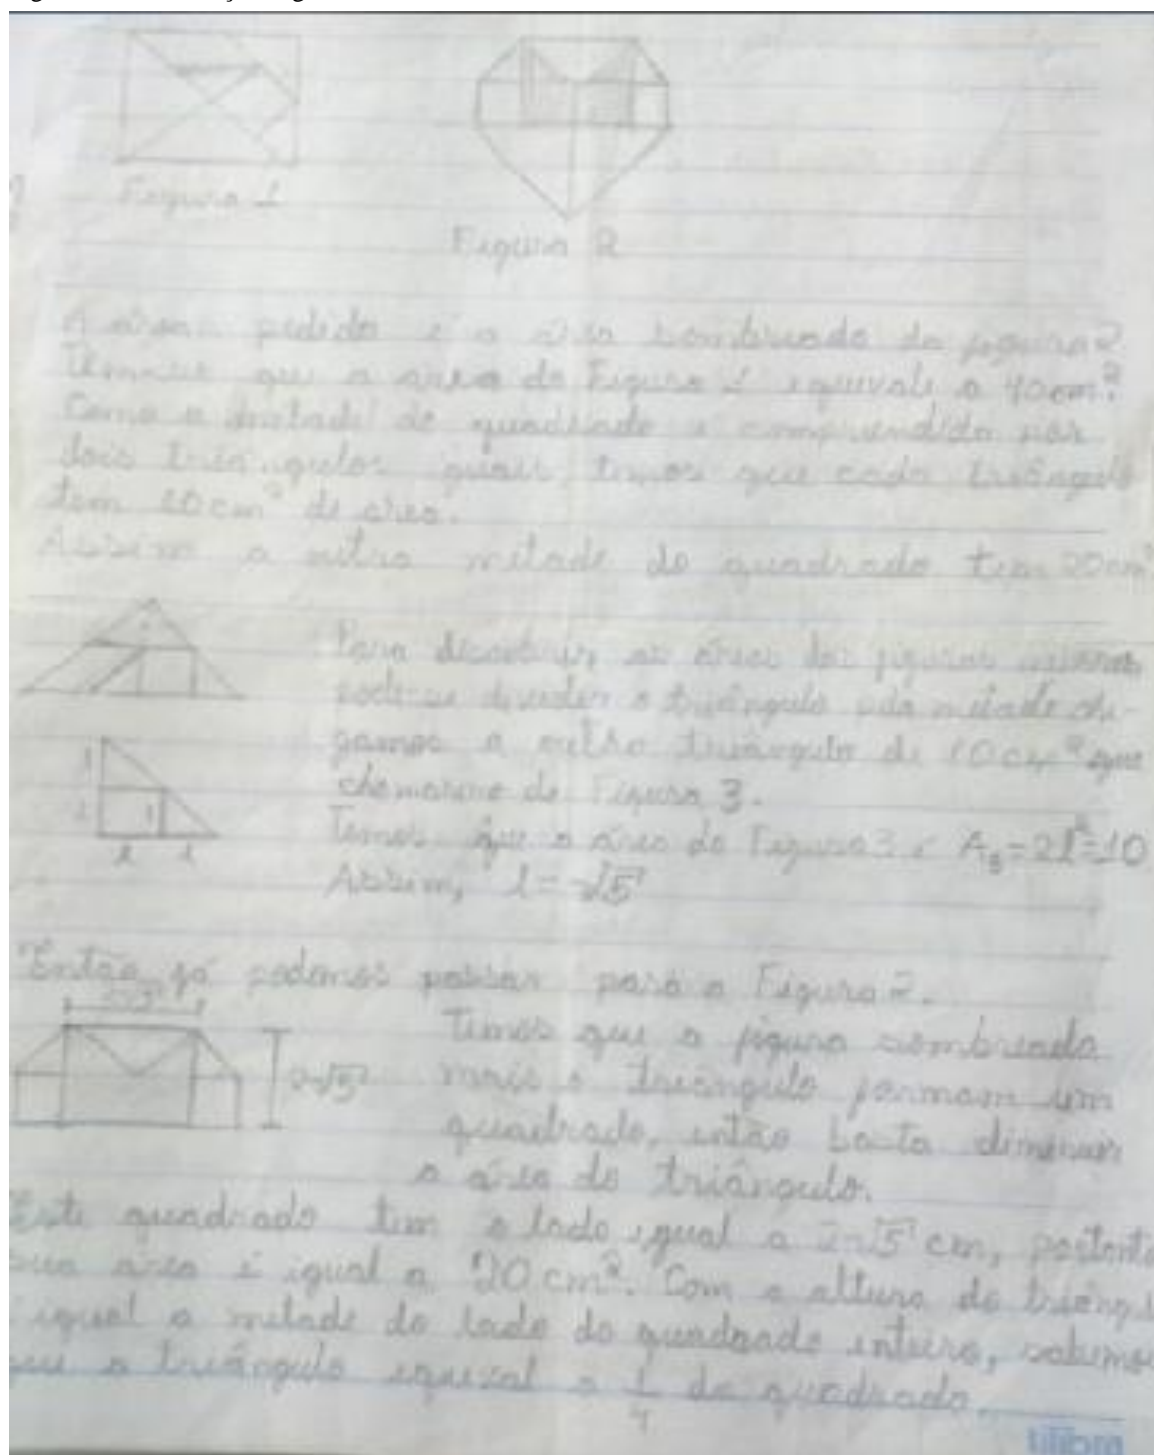 Figura 1
Figura 2
A área pedida é a área sombreada da figura 2
que a área da Figura 1 equivale a 40cm².
Como a metade do quadrado é compreendida por
dois triângulos iguais, temos que cada triângulo
tem 10cm² de área.
Assim a outra metade do quadrado tem 20cm²
Para descobrir as áreas das figuras
pode-se dividir o triângulo pela metade che-
gamos a outro triângulo de 10cm² que
de Figura 3.
Temos que a área da Figura 3 é A₃=2l²=10
Assim, l=√5
l
l
l
l
l
Então já podemos passar para a Figura 2.
2√5
Temos que a figura sombreada
mais o triângulo formam um
quadrado, então basta diminuir
a área do triângulo.
Este quadrado tem o lado igual a 2√5 cm, portanto
sua área é igual a 20cm². Com a altura do
igual a metade do lado do quadrado inteiro,
que o triângulo equival a 1/4 do quadrado.